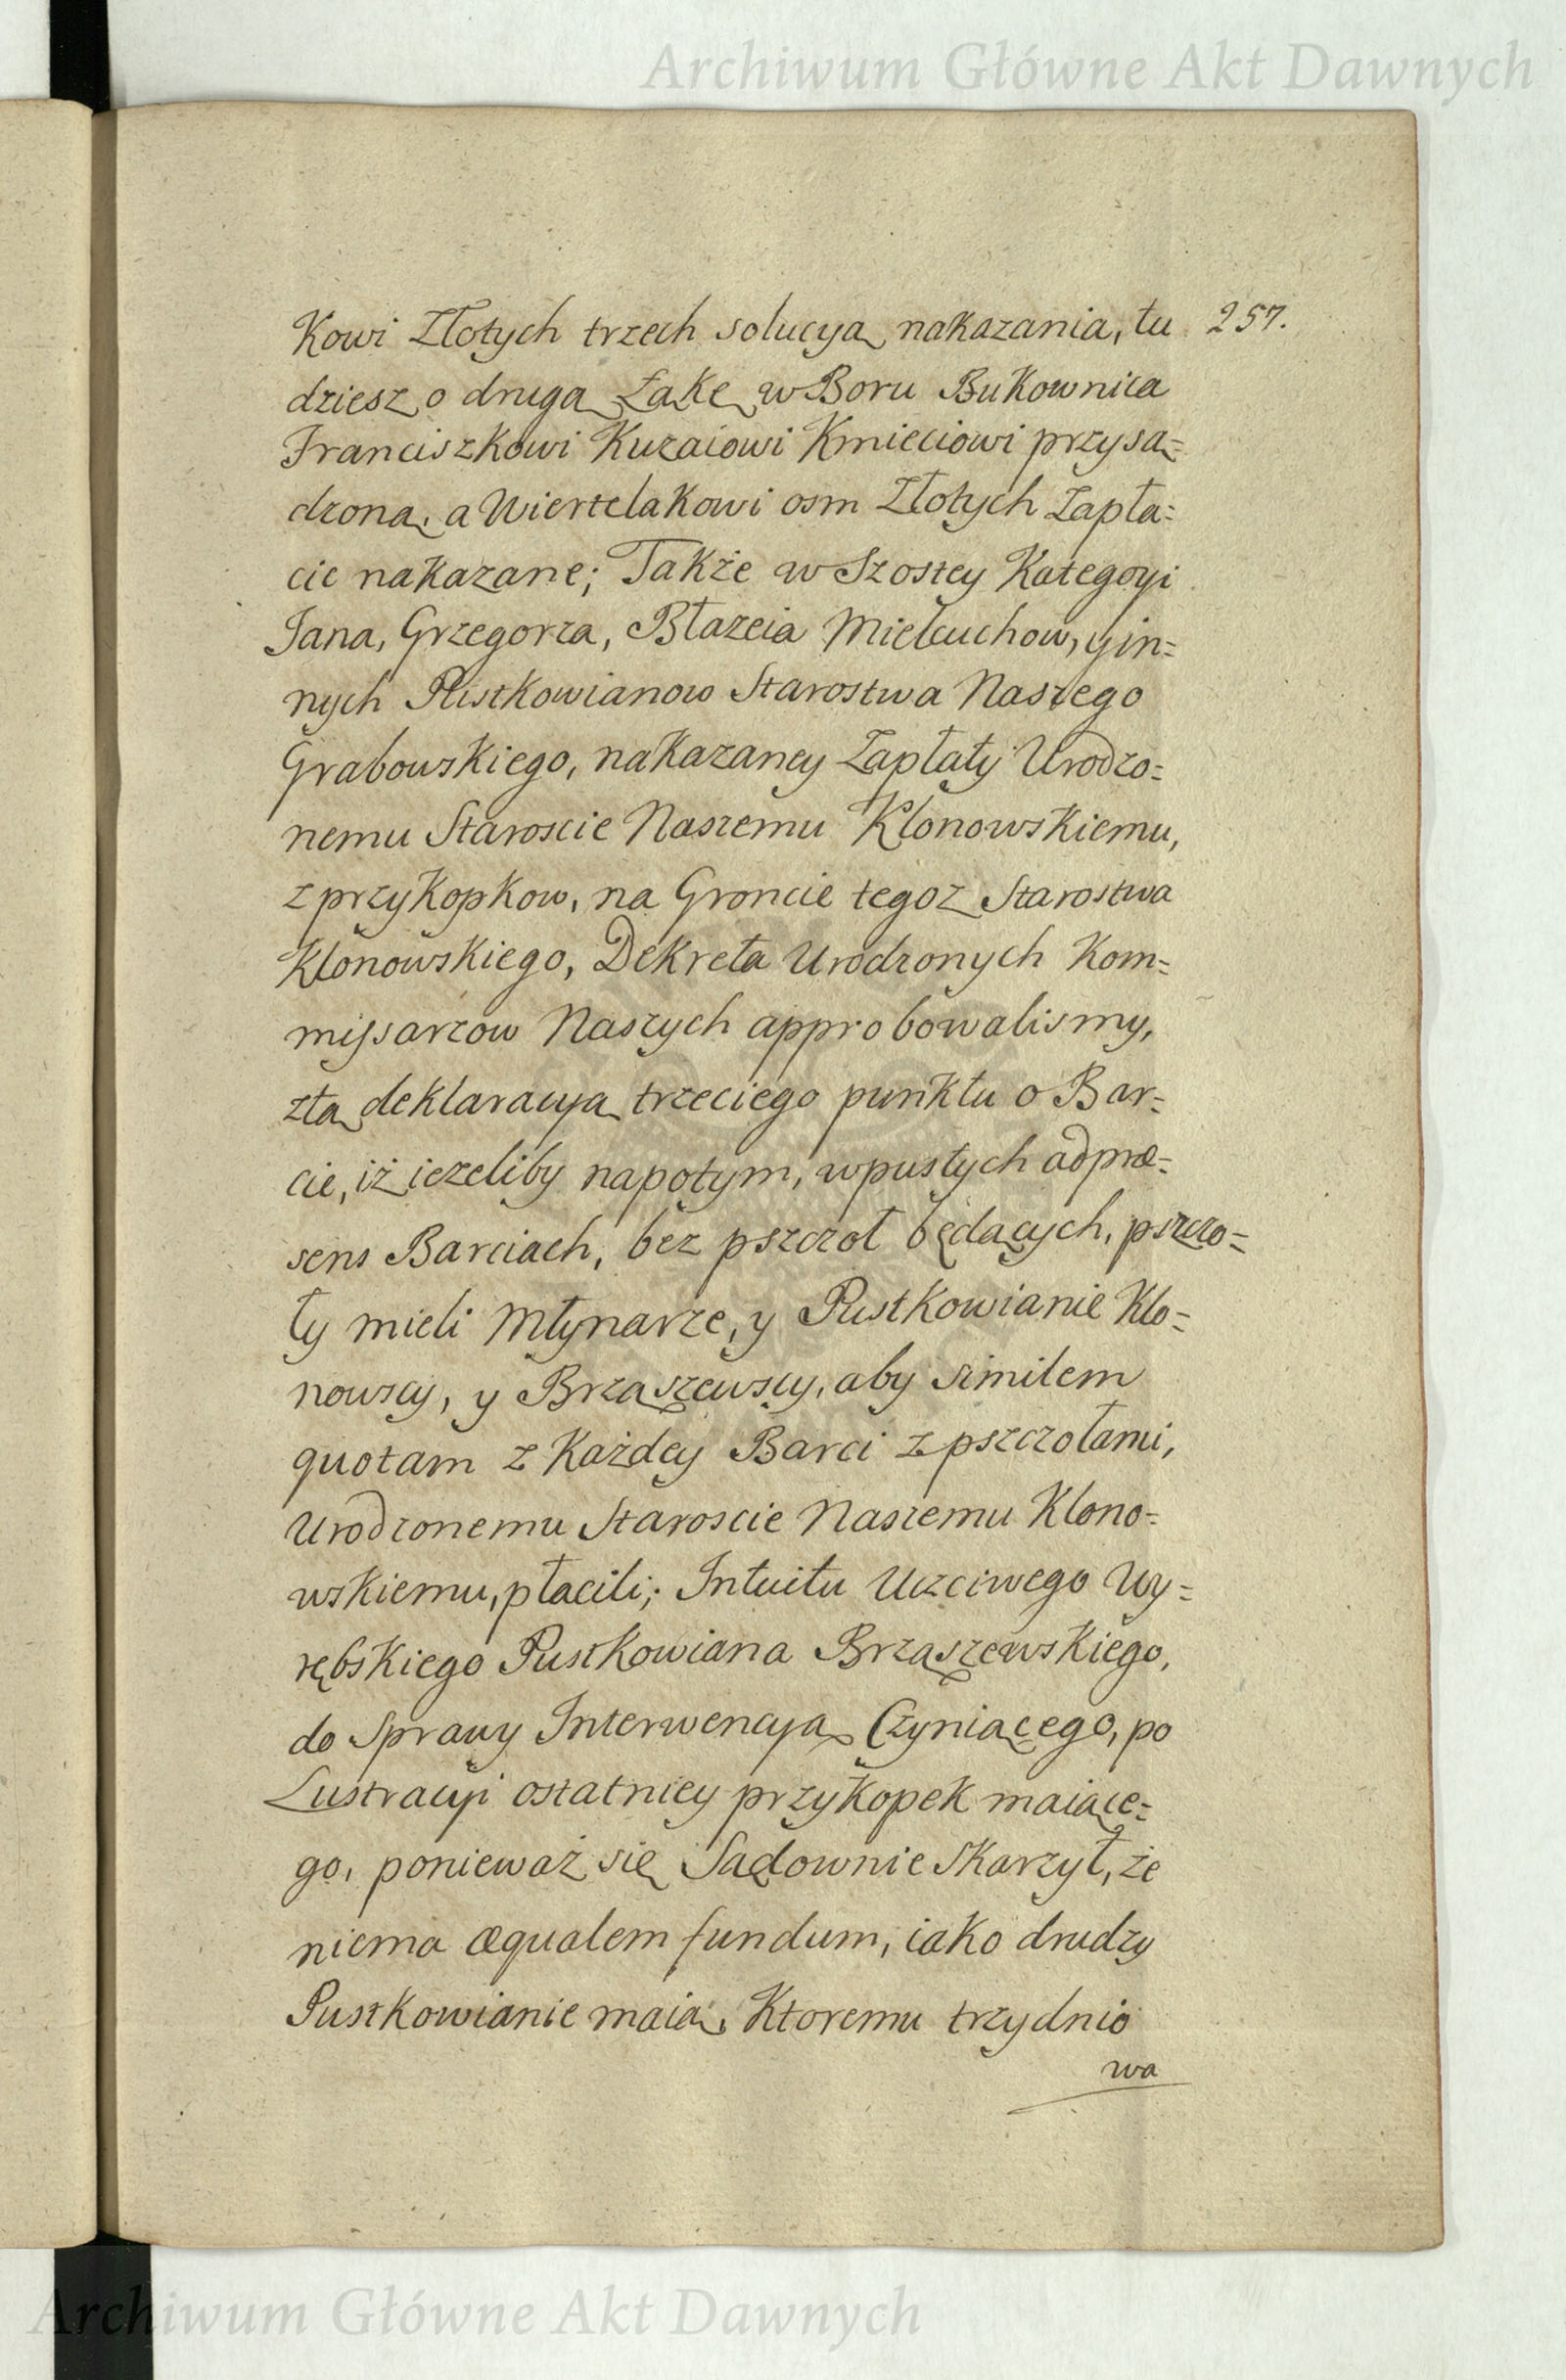 Archiwum Główne Akt Dawnych
Kowi Złotych trzech solucyą nakazania, tu 257.
dziesz o drugą Łąkę w Boru Bukownica
Franciszkowi Kuzaiowi Kmieciowi przysą=
dzoną, a Wiertelakowi osm Złotych Zapła=
cic nakazane; Także w Szostey Kategoyi
Jana, Grzegorza, Błazeia Mielcuchow, y in=
nych Pustkowianow Starostwa Naszego
Grabowskiego, nakazaney Zapłaty Urodzo=
nemu Staroscie Naszemu Klonowskiemu,
z przykopkow, na Groncie tegoz Starostwa
Klonowskiego, Dekreta Urodzonych Kom=
missarzow Naszych approbowalismy,
ztą deklaracyą trzeciego punktu o Bar=
cie, iż iezeliby napotym, wpustych adpræ=
sens Barciach, bez pszczoł będących, pszczo=
ły mieli Młynarze, y Pustkowianie Klo=
nowscy, y Brząszewscy, aby similem
quotam z Każdey Barci z pszczołami,
Urodzonemu Staroscie Naszemu Klono=
wskiemu, płacili; Intuitu Uczciwego Wy=
rębskiego Pustkowiana Brząszewskiego,
do Sprawy Interwencyą Czyniącego, po
Lustracyi ostatniey przykopek maiące=
go, ponieważ się Sądownie Skarzył, że
niema æqualem fundum, iako drudzy
Pustkowianie maią, Ktoremu trzydnio
wa
Archiwum Główne Akt Dawnych